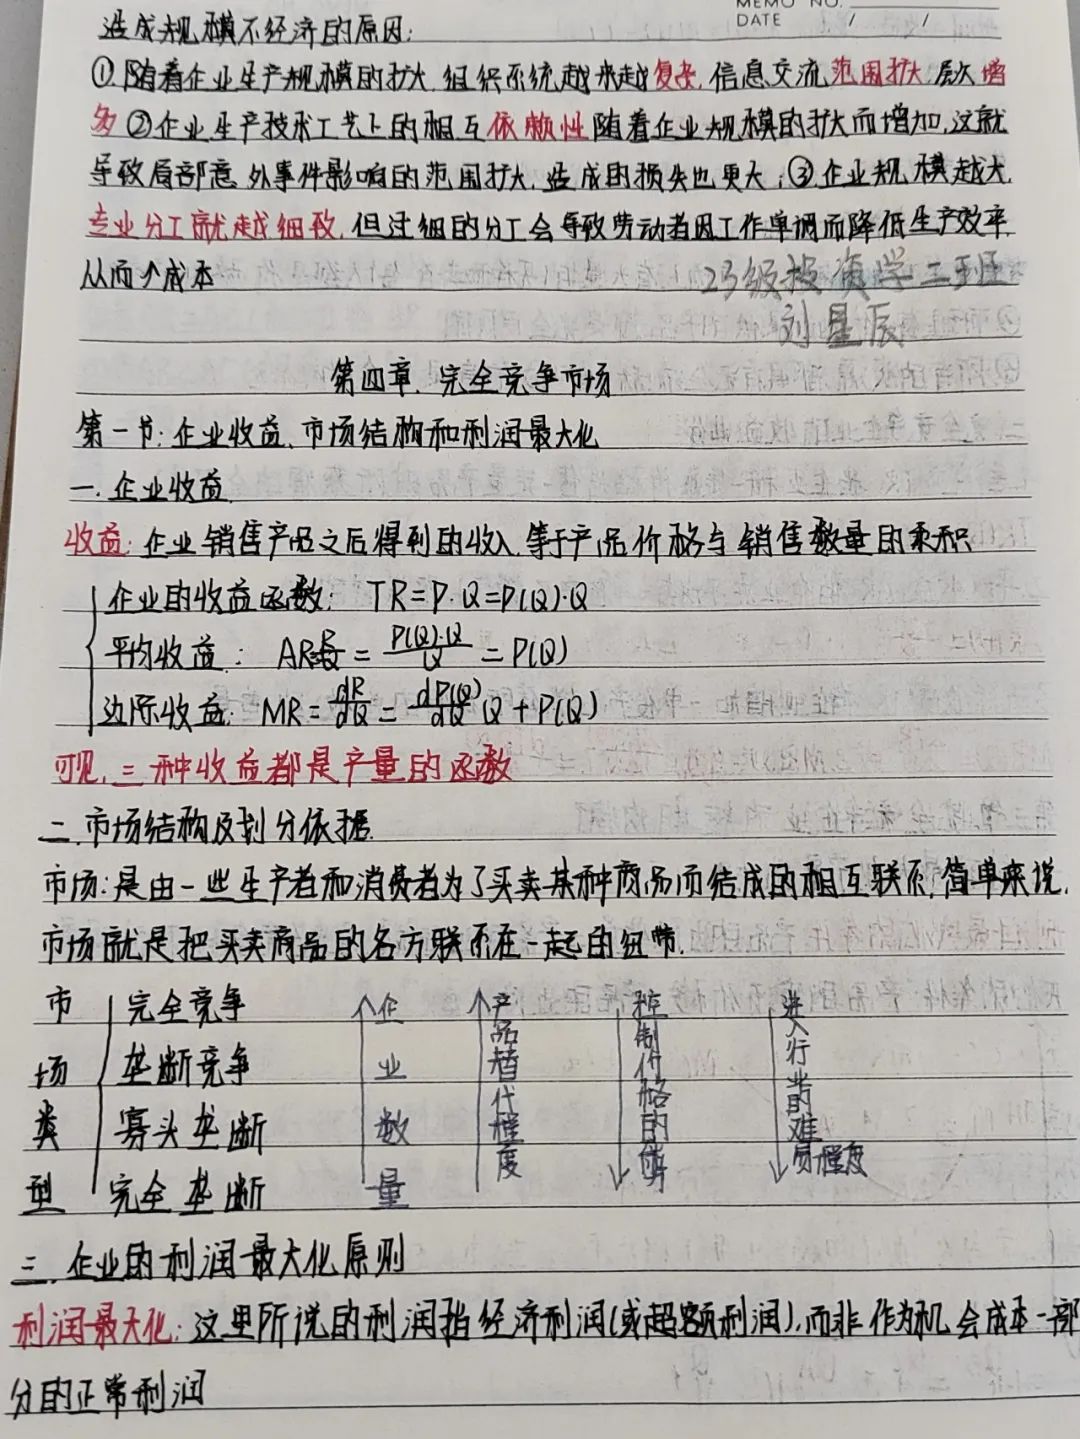 MEMO NO.
DATE / /
造成规模不经济的原因:
①随着企业生产规模的扩大,组织系统越来越复杂,信息交流范围扩大,层次增
多②企业生产技术工艺上的相互依赖性随着企业规模的扩大而增加,这就
导致局部意外事件影响的范围扩大,造成的损失也更大;③企业规模越大,
专业分工就越细致,但过细的分工会导致劳动者因工作单调而降低生产效率
从而个成本
23级投资学二班
刘星辰
第四章.完全竞争市场
第一节:企业收益.市场结构和利润最大化
一.企业收益
收益:企业销售产品之后得到的收入,等于产品价格与销售数量的乘积
企业的收益函数: TR=P·Q=P(Q)·Q
平均收益: AR= R/Q = P(Q)·Q/Q = P(Q)
边际收益: MR= dR/dQ = dP(Q)/dQ Q + P(Q)
可见,三种收益都是产量的函数
二.市场结构及划分依据
市场:是由一些生产者和消费者为了买卖某种商品而结成的相互联系,简单来说,
市场就是把买卖商品的各方联系在一起的纽带.
市场类型
完全竞争
垄断竞争
寡头垄断
完全垄断
↑企业数量
↑产品替代程度
↓控制价格的能力
↓进入行业的难易程度
三.企业的利润最大化原则
利润最大化:这里所说的利润指经济利润(或超额利润),而非作为机会成本一部
分的正常利润